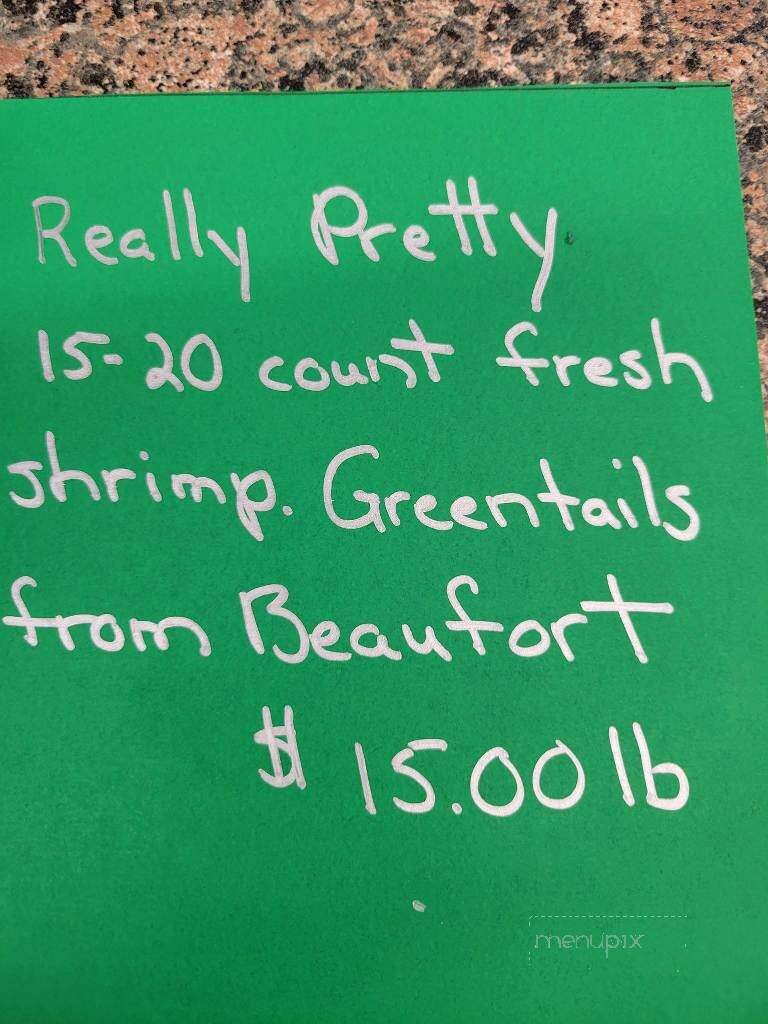 Really Pretty
15-20 count fresh
shrimp. Greentails
from Beaufort
$ 15.00 lb
menupix